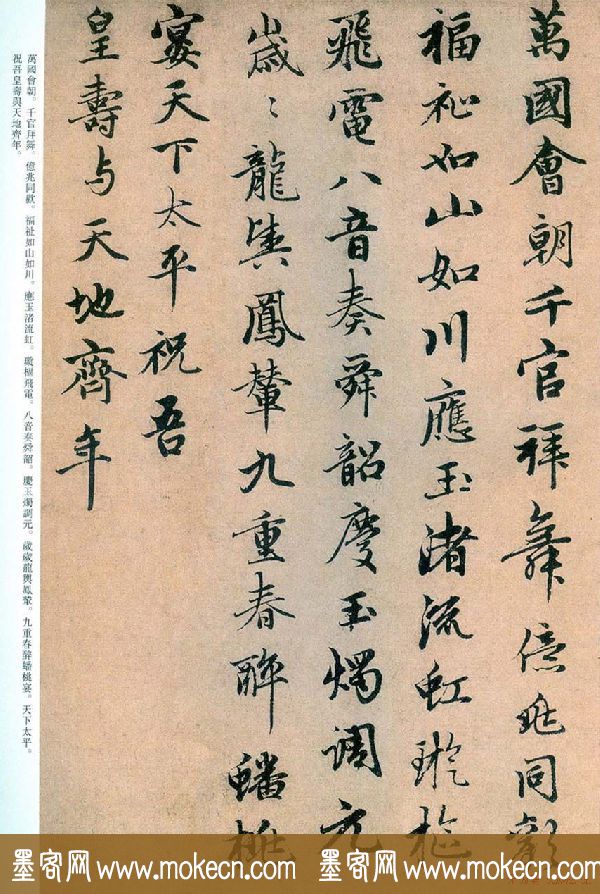 萬國會朝千官拜舞億兆同歡
福祉如山如川應玉渚流虹璇樞
飛電八音奏舜韶慶玉燭調元
歲〻龍輿鳳輦九重春醉蟠桃
宴天下太平祝吾
皇壽与天地齊年
萬國會朝。千官拜舞。億兆同歡。福祉如山如川。應玉渚流虹。璇樞飛電。八音奏舜韶。慶玉燭調元。歲歲龍輿鳳輦。九重春醉蟠桃宴。天下太平。
祝吾皇壽與天地齊年。
墨客网 www.mokecn.com 墨客网 www.mokecn.com